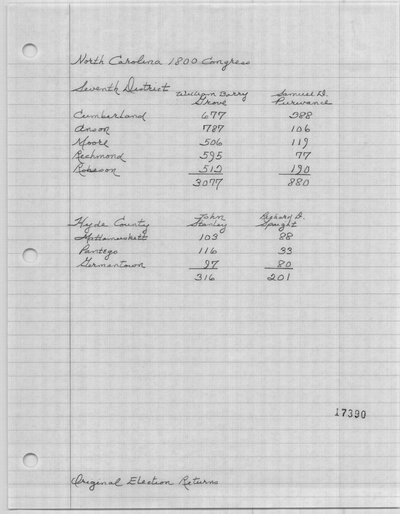 North Carolina 1800 Congress
Seventh District William Barry Grove Samuel D. Purviance
Cumberland 677 388
Anson 787 106
Moore 506 119
Richmond 595 77
Robeson 512 190
3077 880
Hyde County John Stanley Richard D. Spaight
Mattamuskett 103 88
Pantego 116 33
Germantown 97 80
316 201
17390
Original Election Returns